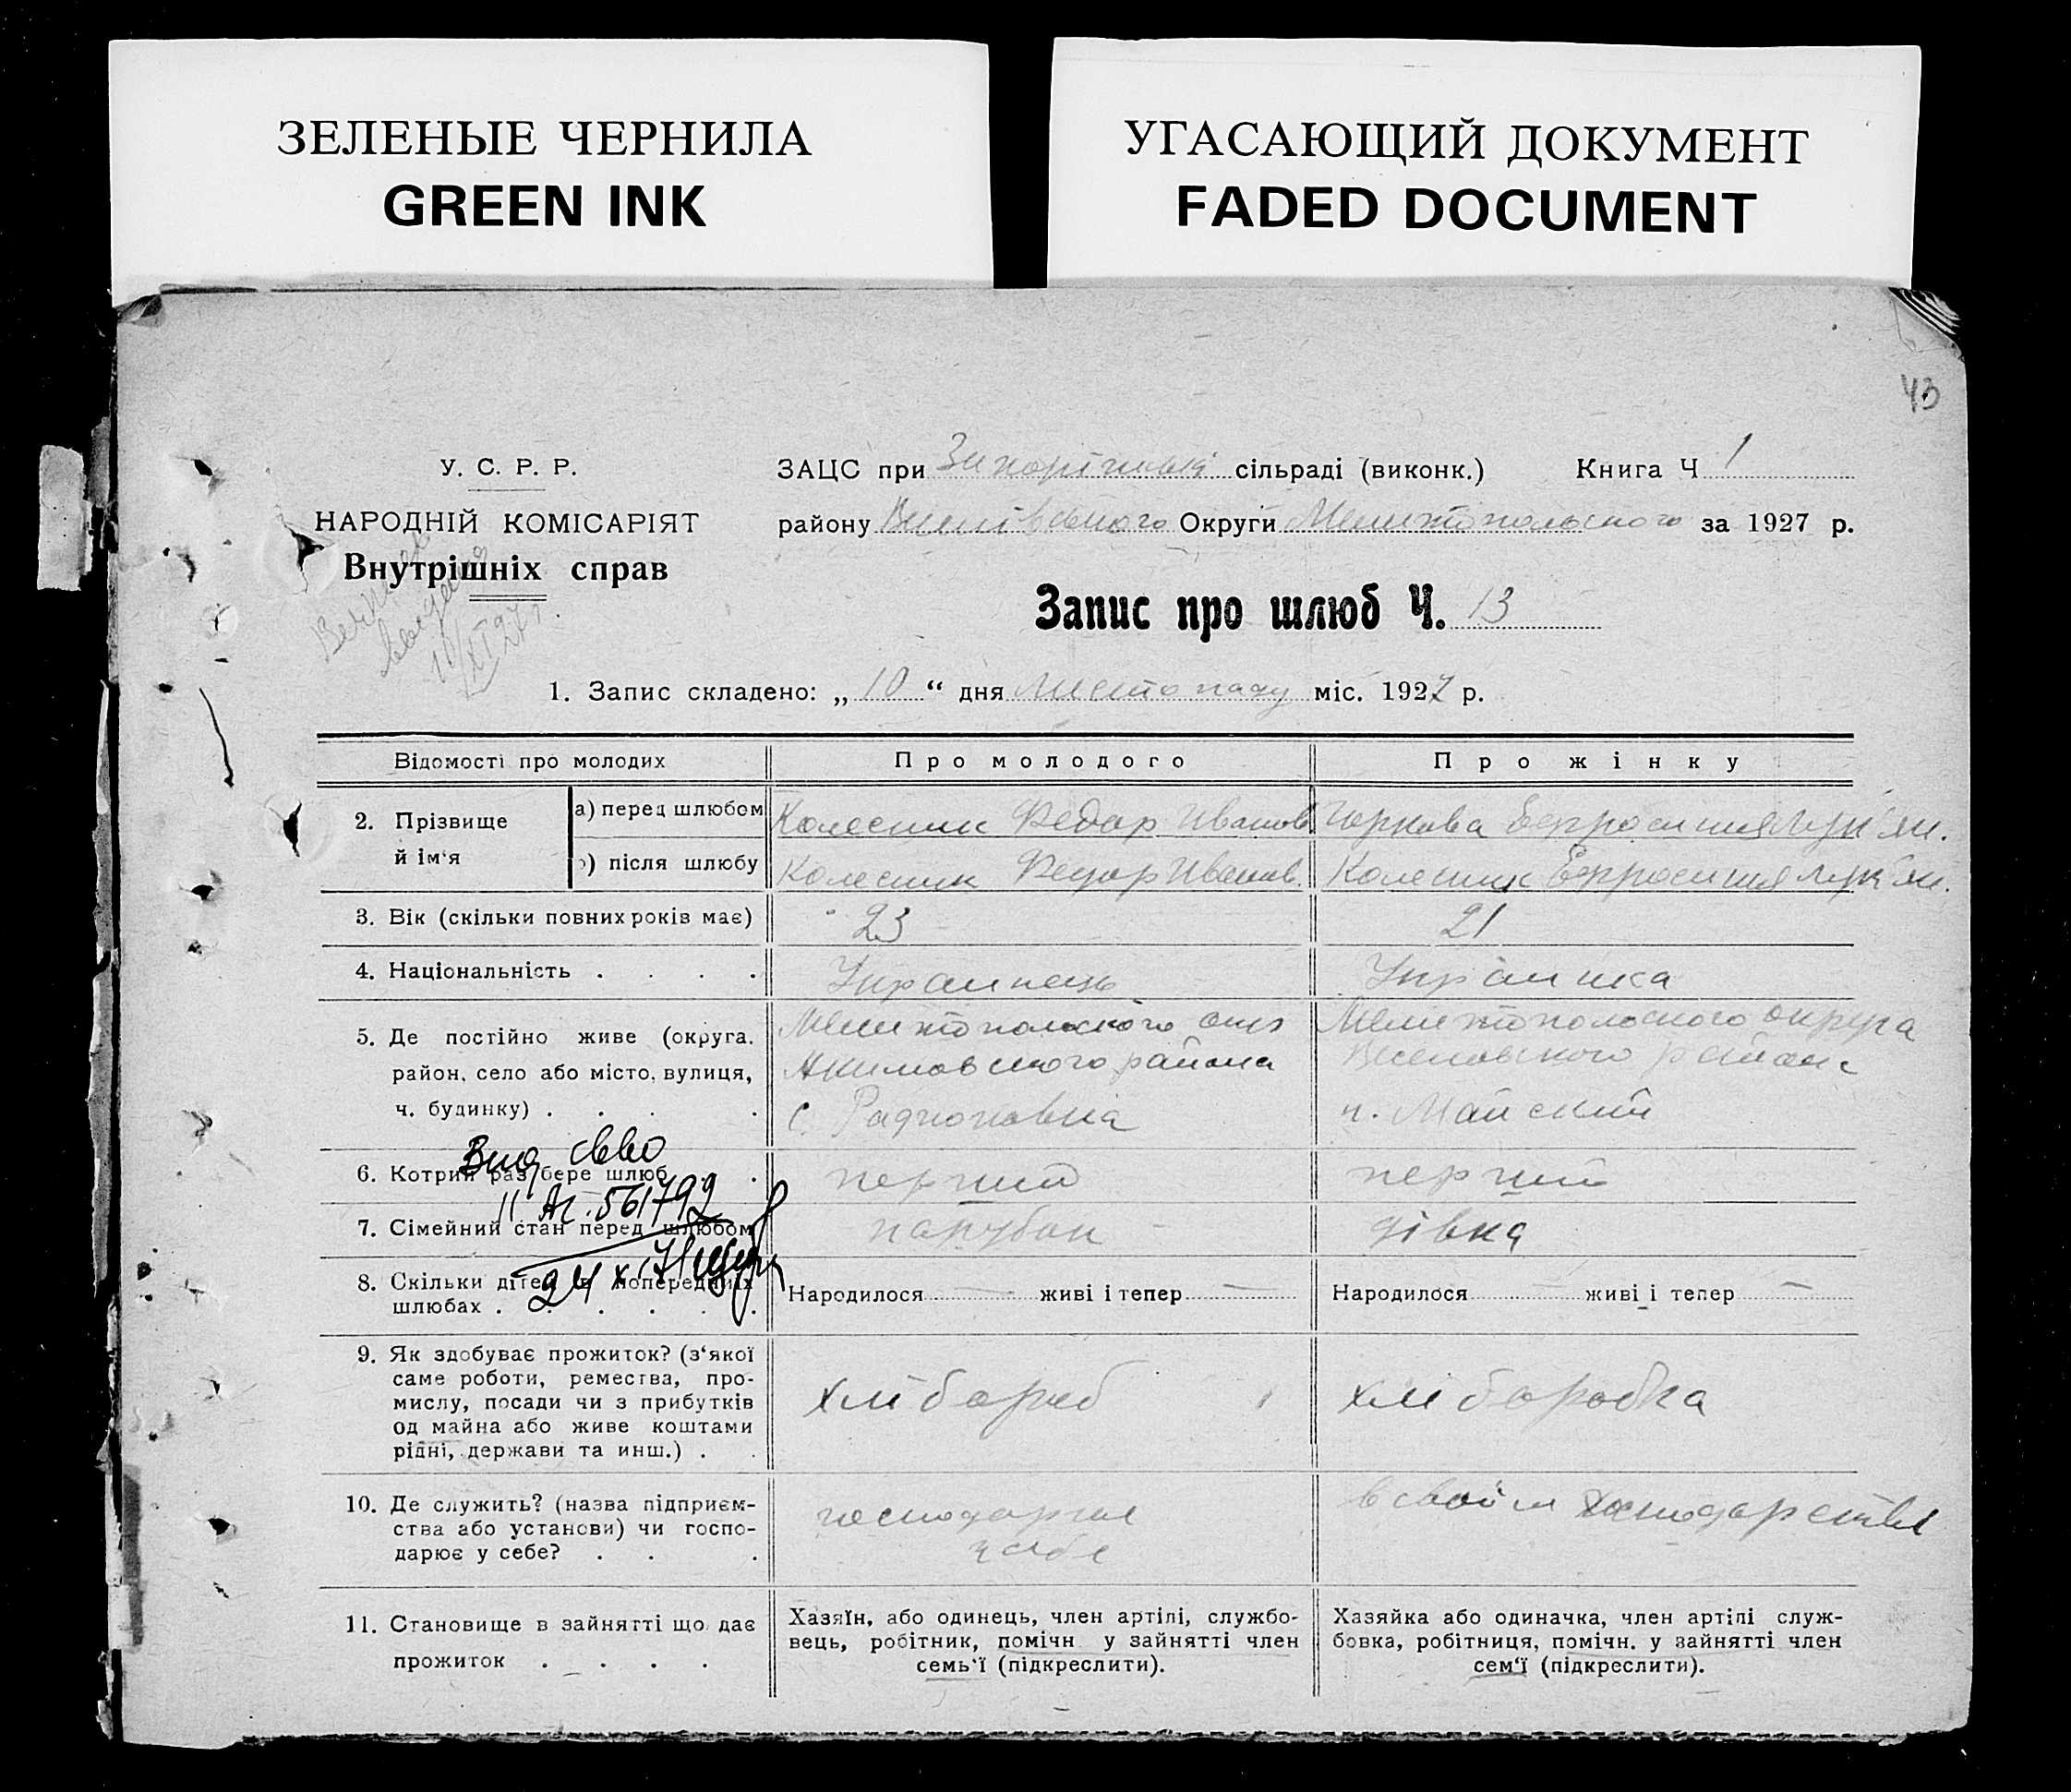 ЗЕЛЕНЫЕ ЧЕРНИЛА
GREEN INK
УГАСАЮЩИЙ ДОКУМЕНТ
FADED DOCUMENT
43
У. С. Р. Р.
НАРОДНІЙ КОМІСАРІЯТ
Внутрішніх справ
ЗАЦС при сільраді (виконк.) Книга Ч 1
району Округи Мелитопольского за 1927 р.
Запис про шлюб Ч. 13
1. Запис складено: „ 10 “ дня листопаду міс. 1927 р.
Відомості про молодих Про молодого Про жінку
2. Прізвище й ім'я
а) перед шлюбом Колесник Федор Иванов. Чоркова Ефросиния Лук'ян.
б) після шлюбу Колесник Федор Иванов. Колесник Ефросиния Лук'ян.
3. Вік (скільки повних років має) 23 21
4. Національність . . . . Українець Українка
5. Де постійно живе (округа, район, село або місто, вулиця, ч. будинку) . . . .
Мелитопольского окр
Акимовского района
с. Радионовка
Мелитопольского округа
Веселовского района
п. Майский
6. Котрий раз бере шлюб . . перший перший
Вид. св-во
7. Сімейний стан перед шлюбом парубок дівка
№ 561792
8. Скільки дітей в попередніх шлюбах . . . . . .
24
Народилося — живі і тепер —
Народилося — живі і тепер —
9. Як здобуває прожиток? (з'якої
саме роботи, ремества, про-
мислу, посади чи з прибутків
од майна або живе коштами
рідні, держави та инш.) . .
хлібороб
хліборобка
10. Де служить? (назва підприєм-
ства або установи) чи госпо-
дарює у себе? . . .
господарює
у себе
в своїм господарстві
11. Становище в зайнятті що дає
прожиток . . . .
Хазяїн, або одинець, член артілі, службо-
вець, робітник, помічн у зайнятті член
семь'ї (підкреслити).
Хазяйка або одиначка, член артілі служ-
бовка, робітниця, помічн. у зайнятті член
сем'ї (підкреслити).